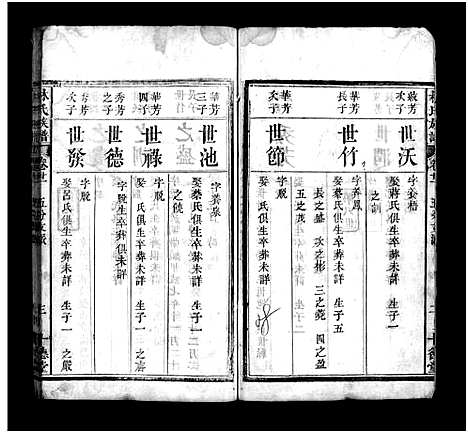 敬芳
次子
世沃
字
娶蔣氏俱生卒葬未詳 生子一
之訓
華芳
長子
世竹
字井鳳
娶蔡氏俱生卒葬未詳 生子五
長之盛 次之彬 三之蕘 四之盈
華芳
次子
世節
娶薛氏俱生卒葬未詳
華芳
三子
世池
字井泉
娶蔡氏俱生卒葬未詳 生子一
之僥
華芳
四子
世祿
字脫
娶 氏俱生卒葬未詳 生子一 之
秀芳
之子
世德
字脫俱生卒葬未詳
秀芳
次子
世發
字脫
娶呂氏俱生卒葬未詳 生子一 之嚴
林氏族譜 卷廿 五分支派 三 十德堂